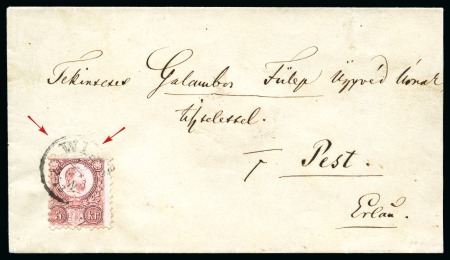 Tekintetes Galambos Fülep Ügyvéd Úrnak
tisztelettel.
Pest.
Erlau.
WIEN
5 Kr